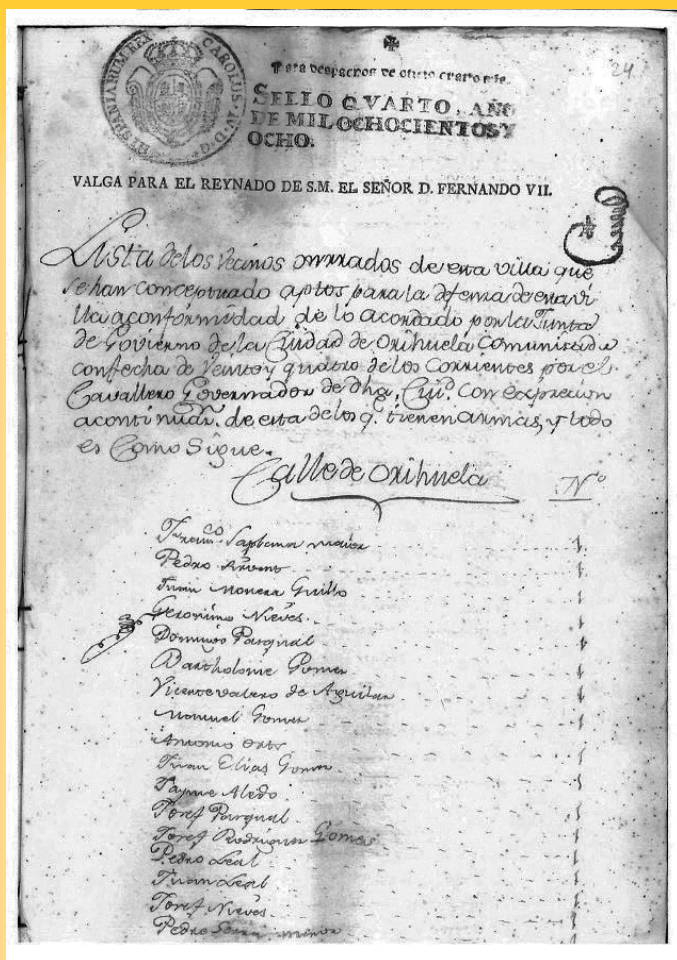 24
HISPANIARUM REX CAROLUS IV D G
Para despachos de oficio quatro mrs.
SELLO QVARTO, AÑO
DE MIL OCHOCIENTOS Y
OCHO.
VALGA PARA EL REYNADO DE S.M. EL SEÑOR D. FERNANDO VII.
Lista de los vecinos onrrados de esta villa que
se han conceptuado aptos para la defensa de esta vi
lla a conformidad de lo acordado por la Junta
de Govierno de la Ciudad de Orihuela comunicada
con fecha de veinte y quatro de los corrientes por el
Cavallero Governador de dha. Ciud. con expresion
a continuan. de esta de los q. tienen armas, y todo
es Como Sigue.
Calle de Orihuela Nº
Franco. Santana maior 1
Pedro 1
Juan Monera Guillo 1
Geronimo Nieves 1
Domingo Pasqual 1
Bartholome Gomez 1
Vicente valero de Aguilar 1
Manuel Gomez 1
Antonio Orts 1
Juan Elias Gomez 1
Jayme Aledo 1
Josef Pasqual 1
Josef Rodriguez Gomes 1
Pedro Leal 1
Juan Leal 1
Josef Nieves 1
Pedro menor 1